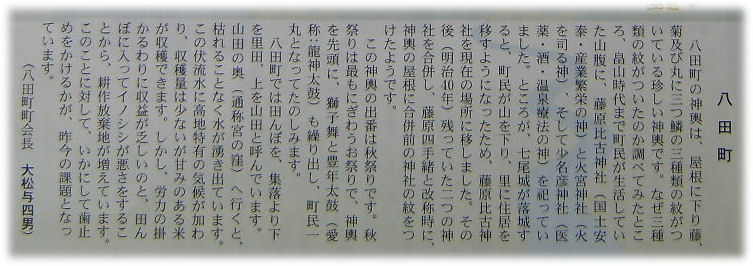 八田町
　八田町の神輿は、屋根に下り藤、
菊及び丸に三つ鱗の三種類の紋がつ
いている珍しい神輿です。なぜ三種
類の紋がついたのか調べてみたとこ
ろ、畠山時代まで町民が生活してい
た山腹に、藤原比古神社（国土安
泰・産業繁栄の神）と火宮神社（火
を司る神）、そして少名彦神社（医
薬・酒・温泉療法の神）を祀ってい
ました。ところが、七尾城が落城す
ると、町民が山を下り、里に住居を
移すようになったため、藤原比古神
社を現在の場所に移しました。その
後（明治40年）残っていた二つの神
社を合併し、藤原四手緒と改称時に、
神輿の屋根に合併前の神社の紋をつ
けたようです。
　この神輿の出番は秋祭りです。秋
祭りは最もにぎわうお祭りで、神輿
を先頭に、獅子舞と豊年太鼓（愛
称：龍神太鼓）も繰り出し、町民一
丸となってたのしみます。
　八田町では田んぼを、集落より下
を里田、上を山田と呼んでいます。
山田の奥（通称宮の窪）へ行くと、
枯れることなく水が湧き出ています。
この伏流水に高地特有の気候が加わ
り、収穫量は少ないが甘みのある米
が収穫できます。しかし、労力の掛
かるわりに収益が乏しいのと、田ん
ぼに入ってイノシシが悪さをするこ
とから、耕作放棄地が増えています。
このことに対して、いかにして歯止
めをかけるかが、昨今の課題となっ
ています。
（八田町町会長　大松与四男）